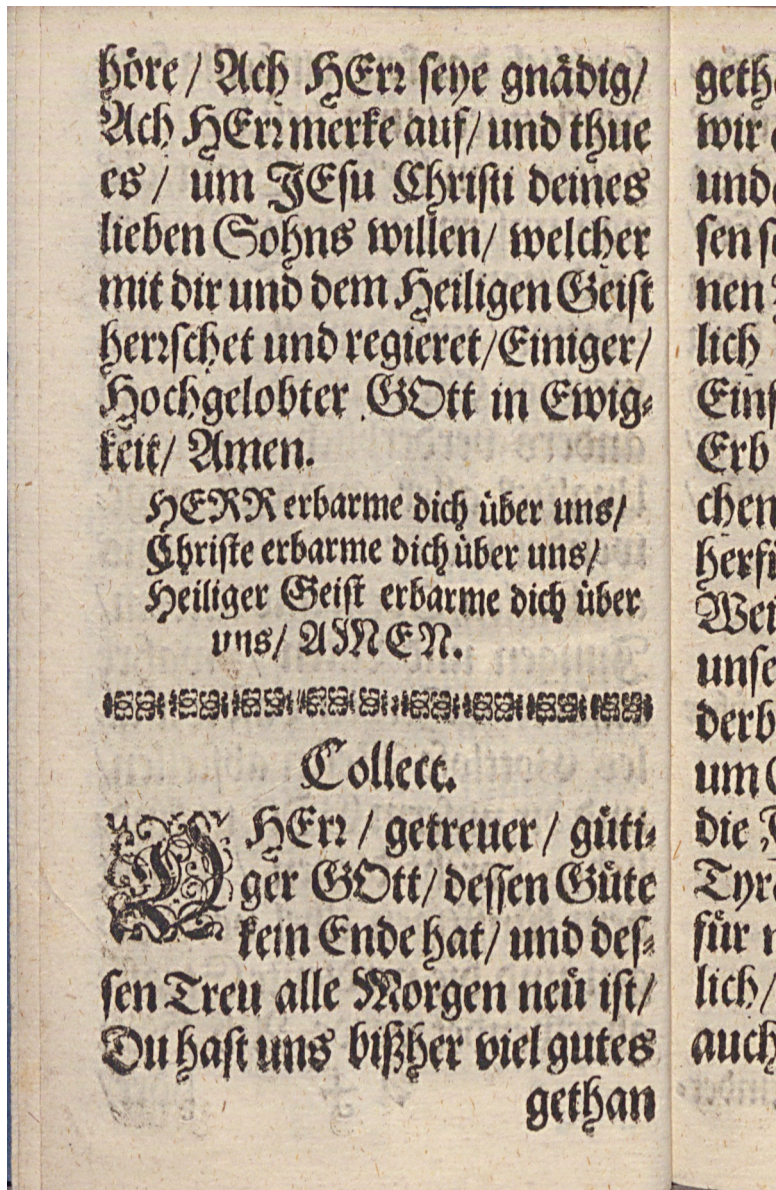 höre / Ach HErr seye gnådig/
Ach HErr merke auf/ und thue
es / um JEsu Christi deines
lieben Sohns willen/ welcher
mit dir und dem Heiligen Geist
herrschet und regieret/ Einiger/
Hochgelobter GOtt in Ewig-
keit/ Amen.
HERR erbarme dich über uns/
Christe erbarme dich über uns/
Heiliger Geist erbarme dich über
uns/ AMEN.
Collect.
O HErr / getreuer / güti-
ger GOtt/ dessen Gůte
kein Ende hat/ und des-
sen Treu alle Morgen neü ist/
Du hast uns bißher viel gutes
gethan
geth
wir
und
sen s
nen
lich
Eins
Erb
chen
herf
Wei
unse
derb
um
die
Tyr
für
lich/
auch